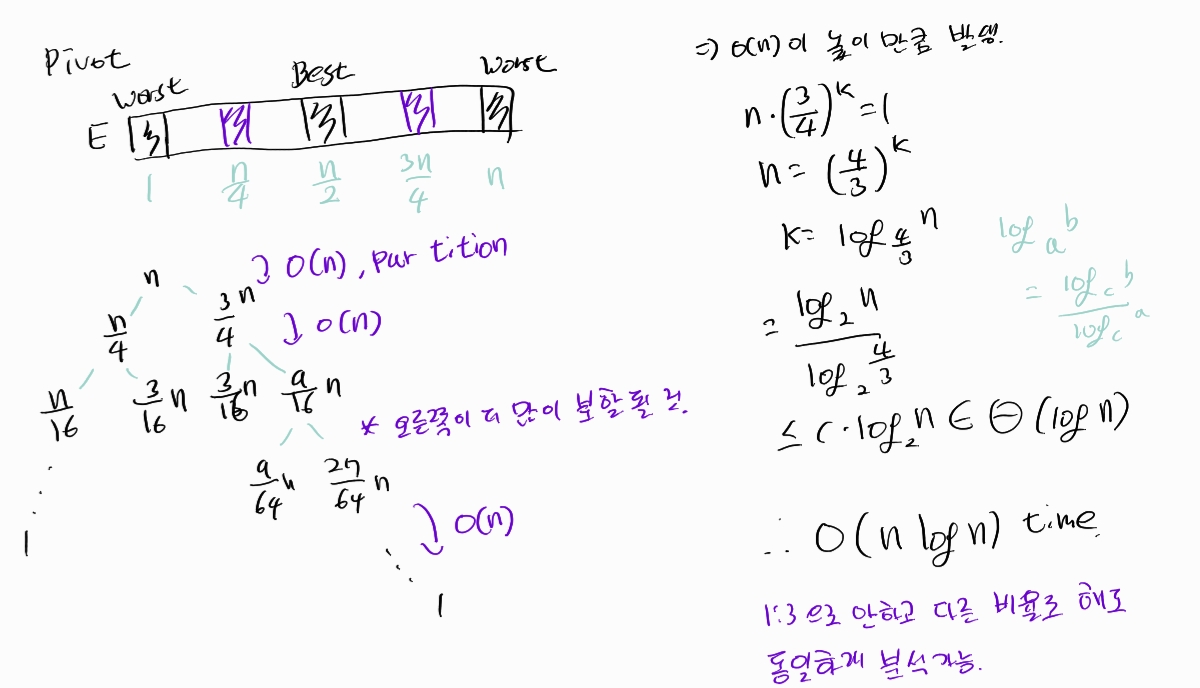 Pivot
Worst Best Worst
E
1 n/4 n/2 3n/4 n
n
O(n), partition
n/4 3/4 n
O(n)
n/16 3/16 n 3/16 n 9/16 n
* 오른쪽이 더 많이 분할될 것.
9/64 n 27/64 n
O(n)
1
1
=) O(n)이 높이 만큼 발생.
n·(3/4)^k = 1
n = (4/3)^k
k = log_{4/3} n
= log_2 n / log_2 4/3
≤ c·log_2 n ∈ Θ(log n)
log_a b
= log_c b / log_c a
∴ O(n log n) time.
1:3으로 안하고 다른 비율로 해도
동일하게 분석가능.